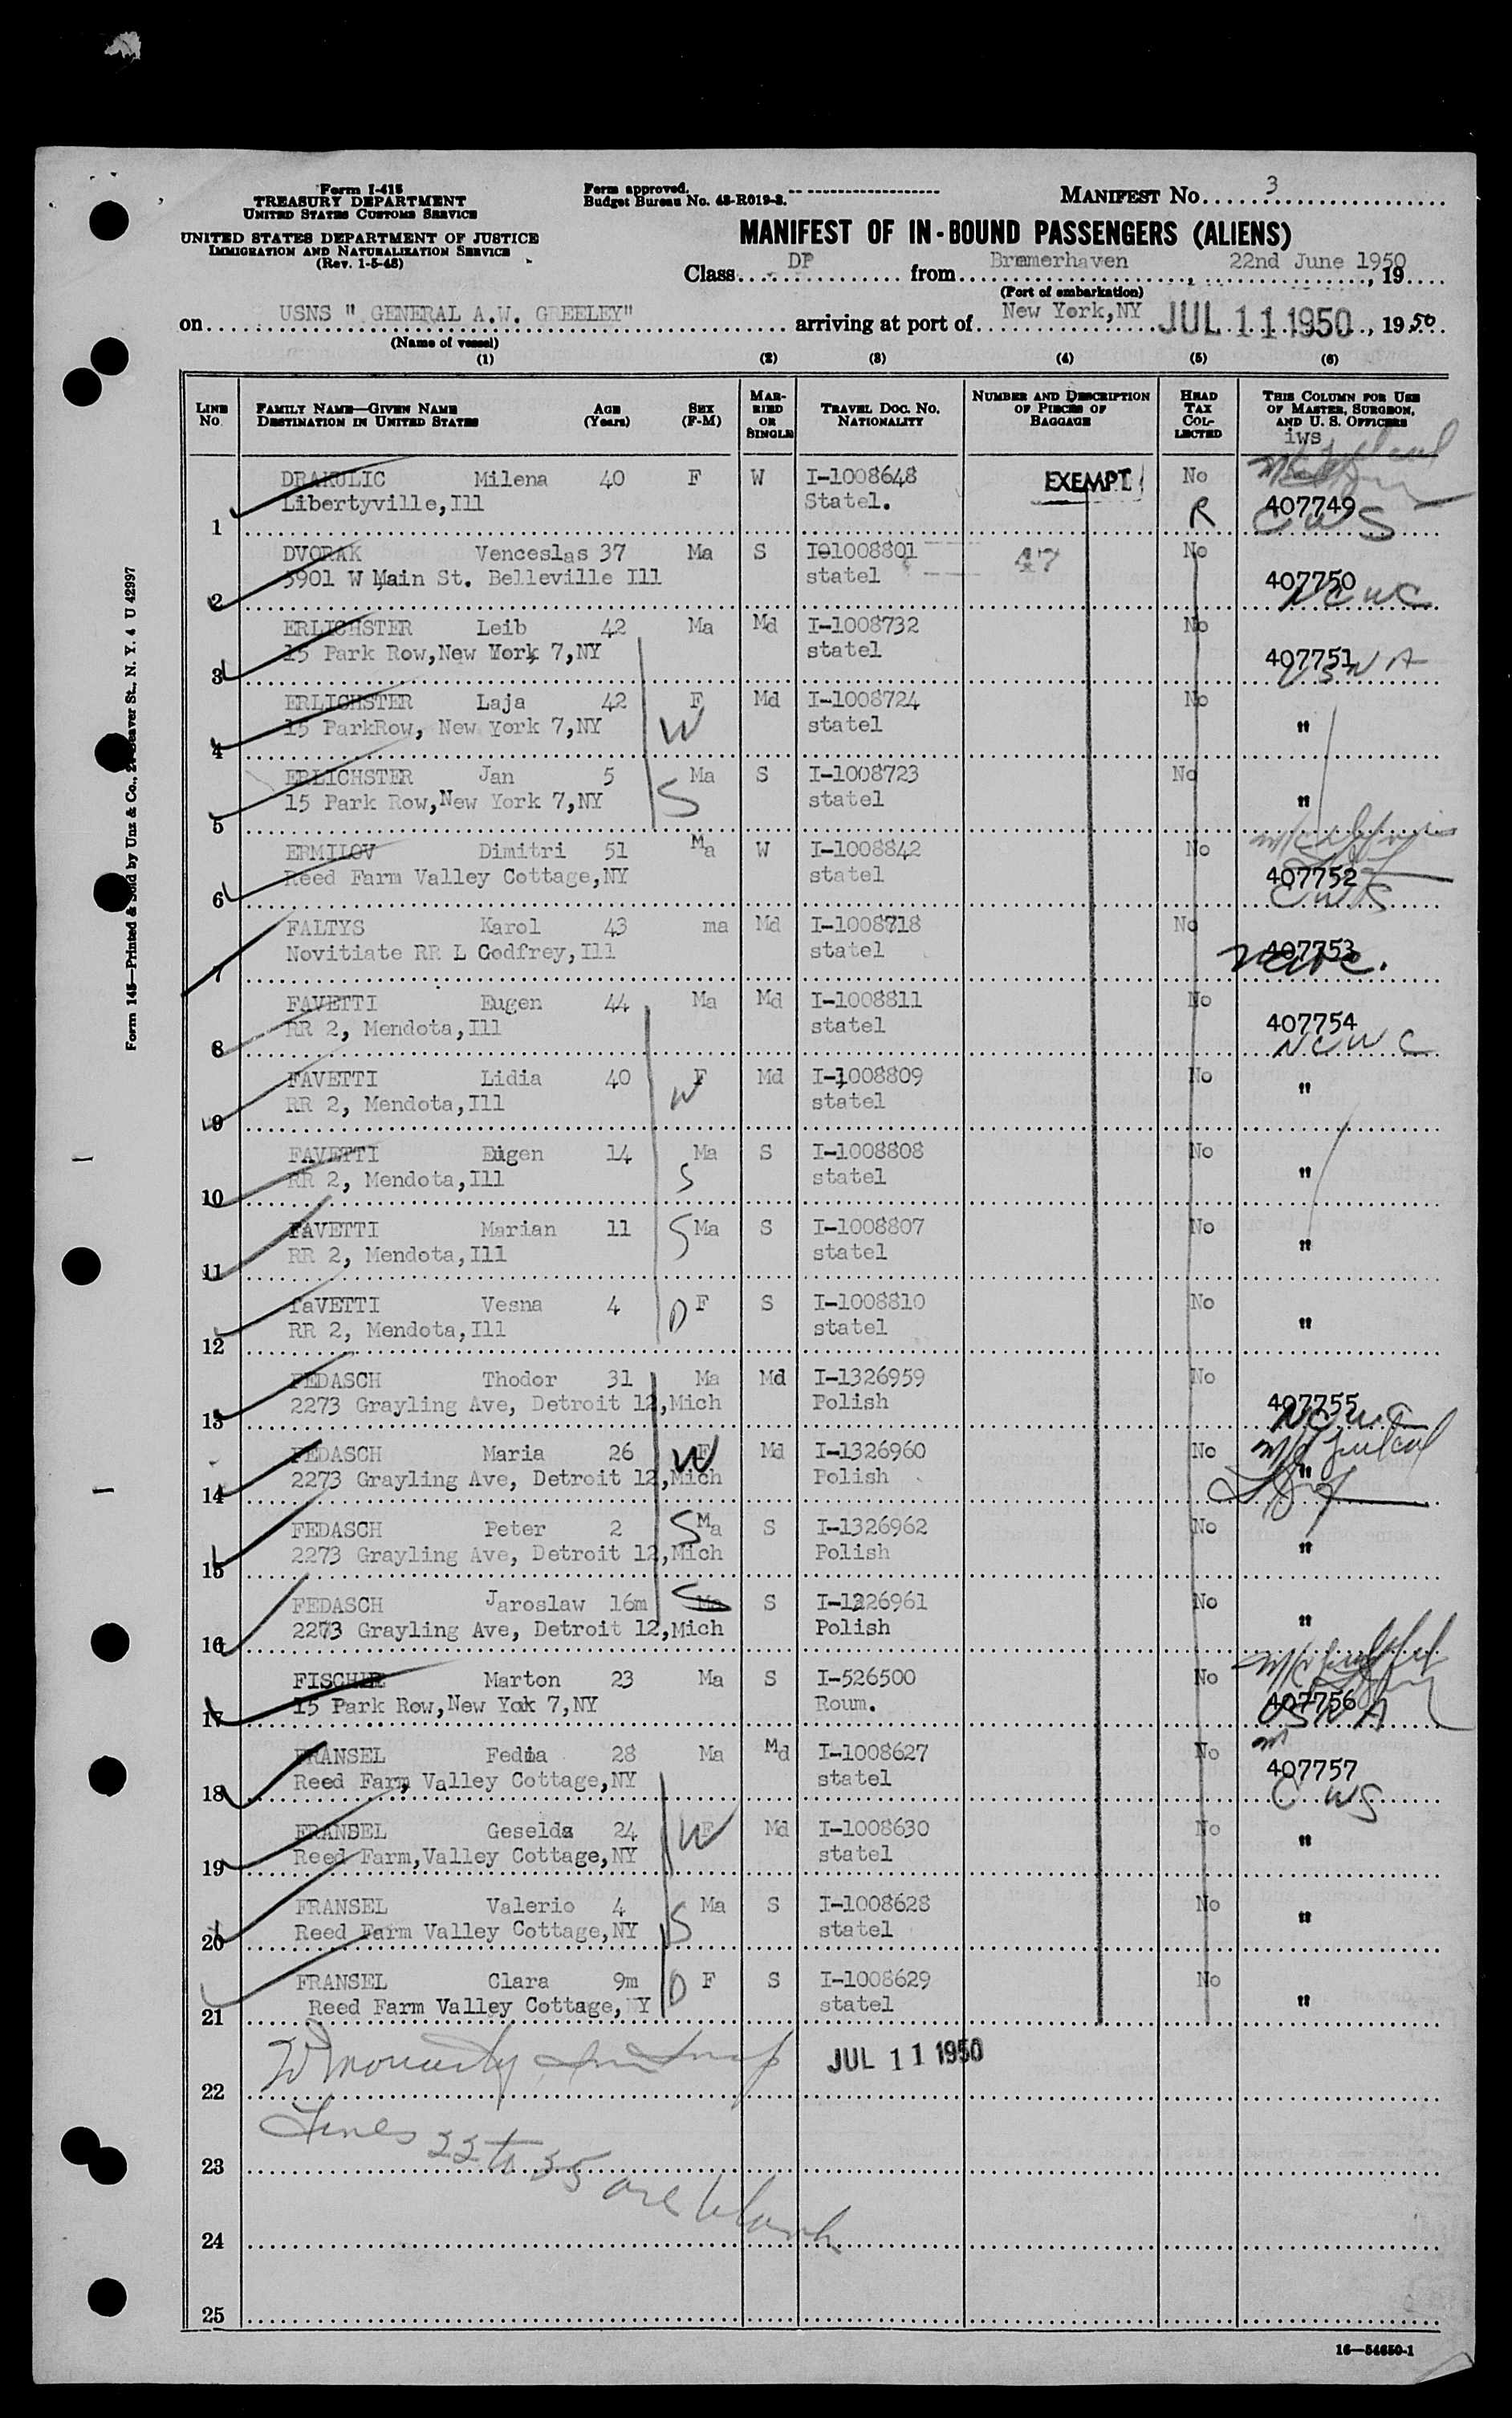 Form I-415
TREASURY DEPARTMENT
UNITED STATES CUSTOMS SERVICE
UNITED STATES DEPARTMENT OF JUSTICE
IMMIGRATION AND NATURALIZATION SERVICE
(Rev. 1-5-48)
Form approved.
Budget Bureau No. 43-R019-3.
MANIFEST No. 3
MANIFEST OF IN-BOUND PASSENGERS (ALIENS)
Class DP from Bremerhaven, 22nd June 1950, 19
(Port of embarkation)
on USNS " GENERAL A.W. GREELEY" arriving at port of New York,NY JUL 11 1950, 19 50
(Name of vessel)
(1) (2) (3) (4) (5) (6)
LINE No. FAMILY NAME—GIVEN NAME DESTINATION IN UNITED STATES AGE (Years) SEX (F-M) MARRIED OR SINGLE TRAVEL DOC. NO. NATIONALITY NUMBER AND DESCRIPTION OF PIECES OF BAGGAGE HEAD TAX COLLECTED THIS COLUMN FOR USE OF MASTER, SURGEON, AND U. S. OFFICERS
iws
DRAKULIC Milena 40 F W I-1008648 EXEMPT No
1 Libertyville,Ill Statel. R 407749 CWS
DVORAK Venceslas 37 Ma S I01008801 47 No
2 5901 W Main St. Belleville Ill statel 407750 NCWC
ERLICHSTER Leib 42 Ma Md I-1008732 No
3 15 Park Row,New York 7,NY statel 407751 USNA
ERLICHSTER Laja 42 F Md I-1008724 No
4 15 ParkRow, New York 7,NY W statel "
ERLICHSTER Jan 5 Ma S I-1008723 No
5 15 Park Row,New York 7,NY S statel "
ERMILOV Dimitri 51 Ma W I-1008842 No
6 Reed Farm Valley Cottage,NY statel 407752 CWS
FALTYS Karol 43 ma Md I-1008718 No
7 Novitiate RR L Godfrey,Ill statel 407753 NCWC.
FAVETTI Eugen 44 Ma Md I-1008811 No
8 RR 2, Mendota,Ill statel 407754 NCWC
FAVETTI Lidia 40 F Md I-1008809 No
9 RR 2, Mendota,Ill W statel "
FAVETTI Eugen 14 Ma S I-1008808 No
10 RR 2, Mendota,Ill S statel "
FAVETTI Marian 11 S Ma S I-1008807 No
11 RR 2, Mendota,Ill statel "
faVETTI Vesna 4 D F S I-1008810 No
12 RR 2, Mendota,Ill statel "
FEDASCH Thodor 31 Ma Md I-1326959 No
13 2273 Grayling Ave, Detroit 12,Mich Polish 407755 NCWC
FEDASCH Maria 26 W F Md I-1326960 No
14 2273 Grayling Ave, Detroit 12,Mich Polish "
FEDASCH Peter 2 S Ma S I-1326962 No
15 2273 Grayling Ave, Detroit 12,Mich Polish "
FEDASCH Jaroslaw 16m S Ma S I-1326961 No
16 2273 Grayling Ave, Detroit 12,Mich Polish "
FISCHER Marton 23 Ma S I-526500 No
17 15 Park Row,New York 7,NY Roum. 407756 USNA
FRANSEL Fedia 28 Ma Md I-1008627 No
18 Reed Farm, Valley Cottage,NY statel 407757 CWS
FRANSEL Geselda 24 W F Md I-1008630 No
19 Reed Farm,Valley Cottage,NY statel "
FRANSEL Valerio 4 S Ma S I-1008628 No
20 Reed Farm Valley Cottage,NY statel "
FRANSEL Clara 9m D F S I-1008629 No
21 Reed Farm Valley Cottage, NY statel "
JUL 11 1950
22
Lines 22 to 25 are blank
23
24
25
16—54650-1
Form 145—Printed & Sold by Unz & Co., Beaver St., N. Y. 4 U 42997